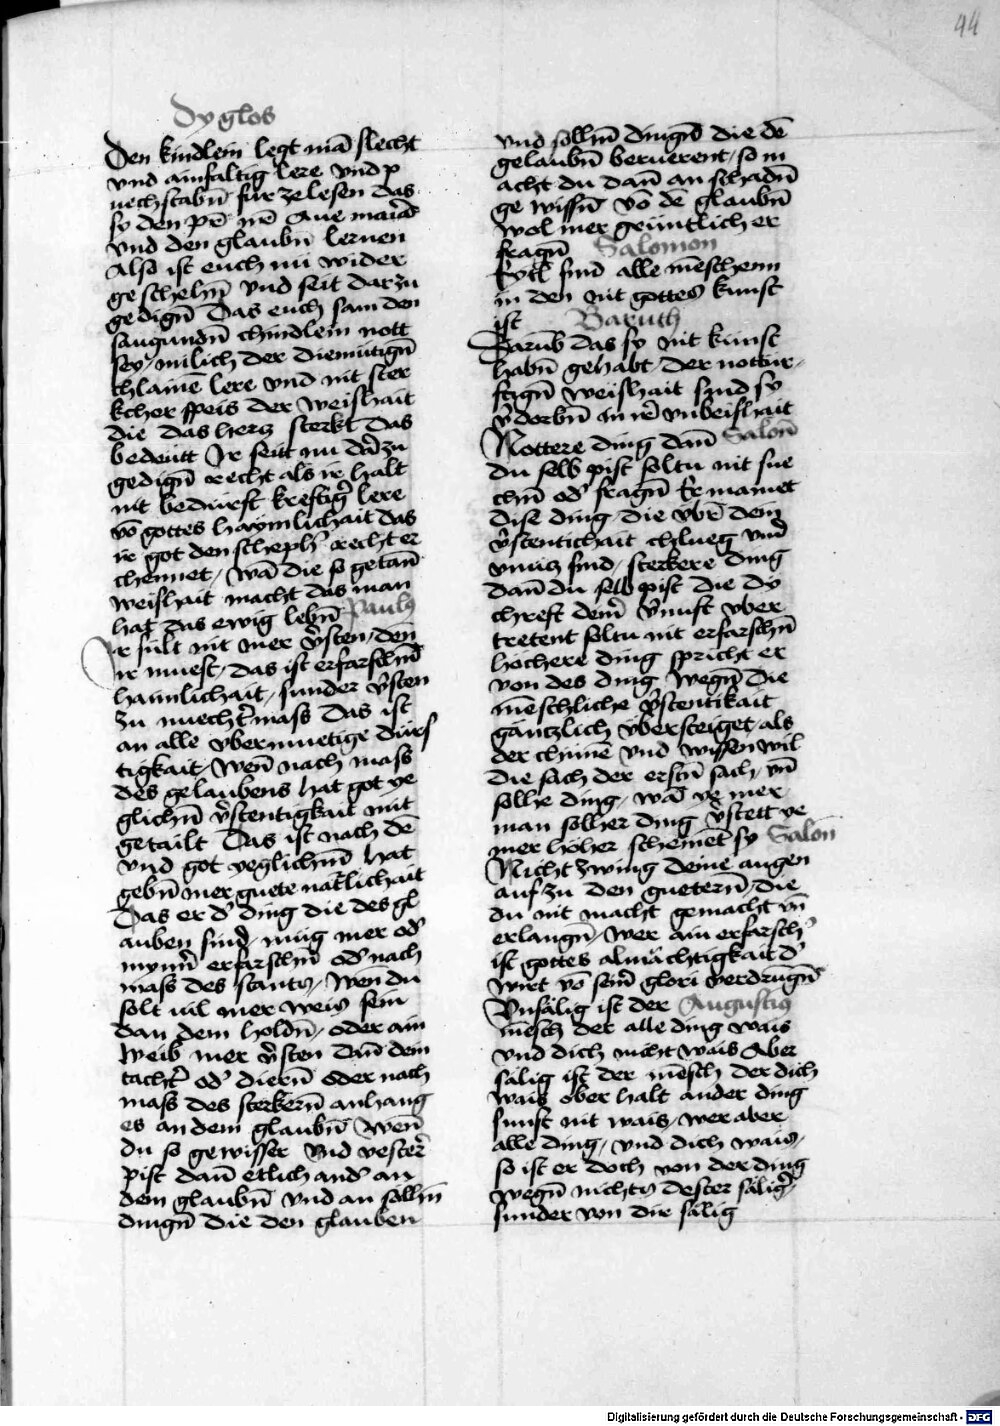 44
Dy glos
Den kindlein legt mā slecht
vnd ainfaltig lere vnd p
uechstabn̄ fur zelesen das
sy den pr̄ nr̄ Aue maiā
vnd den glaubn̄ lernen
Also ist euch nu wider
geschehn̄ vnd seit darzu
gedign̄ Das euch sam den
saugundn̄ chindlein nott
sey milich der diemutign̄
chlainē lere vnd nit ster
kcher speis der weishait
die das hertz sterkt das
bedeutt Ir seitt nu darzu
gedign̄ recht als ir halt
nit bedürft kreftigr̄ lere
vō gottes haymlichait das
ir got den scheph' recht er
chennet / wā die so getan̄
weishait macht das man
hat das ewig lebn̄ Paulus
Ir sült nit mer v̄sten / den
ir muest / das ist erfarschn̄
haimlichait / sunder v̄sten
zu muecht̄ mass Das ist
an alle vbermuetige durf
tigkait / wen̄ nach mass
des gelaubens hat got ye
glichn̄ v̄stentigkait mit
getailt Das ist nach dē
vnd got yeglichn̄ hat
gebn̄ mer guete nat̄lichait
Das er d' ding die des gl
auben sind / mug mer od'
mynn̄ erfarschn̄ od' nach
mass des stants / wen du
solt uil mer weis sein
dan dem holdn̄ / oder ain
weib mer v̄sten dan̄ dem
tacht̄ od' diern̄ oder nach
mass des sterkern̄ anhang
es an dem glaubn̄ wen̄
du so gewisser vnd vester̄
pist dan̄ etlich and' an
dem glaubn̄ vnd an sölhn̄
dingn̄ die den glauben
vnd sollhn̄ dingn̄ die dē
gelaubn̄ beruerent / so in
acht du dan̄ an schadn̄
gewissn̄ vō dē glaubn̄
wol mer geüntlich er
fragn̄ Salomon
Eytl sind alle mēschenn
in den nit gottes kunst
ist Baruth
Darub̄ das sy nit kunst
habn̄ gehabt / der nottur
ftign̄ weishait sind sy
v̄dorbn̄ in ir̄ vnbeishait
Nottere ding dan̄ Salon̄
du selb pist soltu nit sue
chn̄ od' fragn̄ Er mainet
dise ding / die vbr̄ dein
v̄stentichait chlueg vnd
vnutz sind / sterkere ding
dan̄ du selb pist die dy
chreft dein̄ v̄nuft vber
tretent soltu nit erfarschn̄
höchere ding spricht er
von des ding wegn̄ die
mēschliche v̄stentikait
gäntzlich vbersteiget / als
der chūnē vnd wissen wil
die sach der erstn̄ sach / vn̄
sollhe ding / wā ye mer
man solher ding v̄stett ye
mer höher schemēt sy Salon̄
Nicht zwing deine augen
auf zu den guetern̄ / die
du nit macht gemacht vn̄
erlangn̄ / wer ain erfarsch'
ist gottes almächtigkait d'
wirt vō sein̄ glori verdrugn̄
Vnsälig ist der Augustins
mēsch der alle ding wais
vnd dich nicht wais Aber
sälig ist der mēsch der dich
wais ober halt ander ding
sunst nit wais / wer aber
alle ding / vnd dich wais /
so ist er doch von der ding
wegn̄ nichts dester säliḡ
sunder von dir sälig
Digitalisierung gefördert durch die Deutsche Forschungsgemeinschaft - DFG